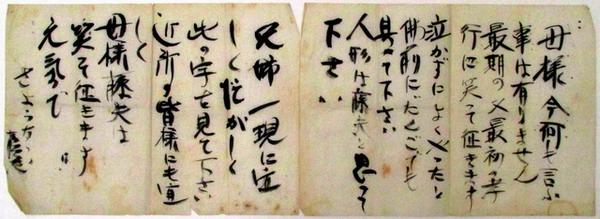 母様今何も言ふ
事は有りません
最期の又最初の孝
行に笑って征きます
泣かずによくやったと
佛前に、だんごでも
具へて下さい
人形は藤夫と思って
下さい
兄姉一現に宜
しく忙がしく
此の字を見て下さい
近所の皆様にも宜
しく
母様藤夫は
笑って征きます
元気で
さようなら